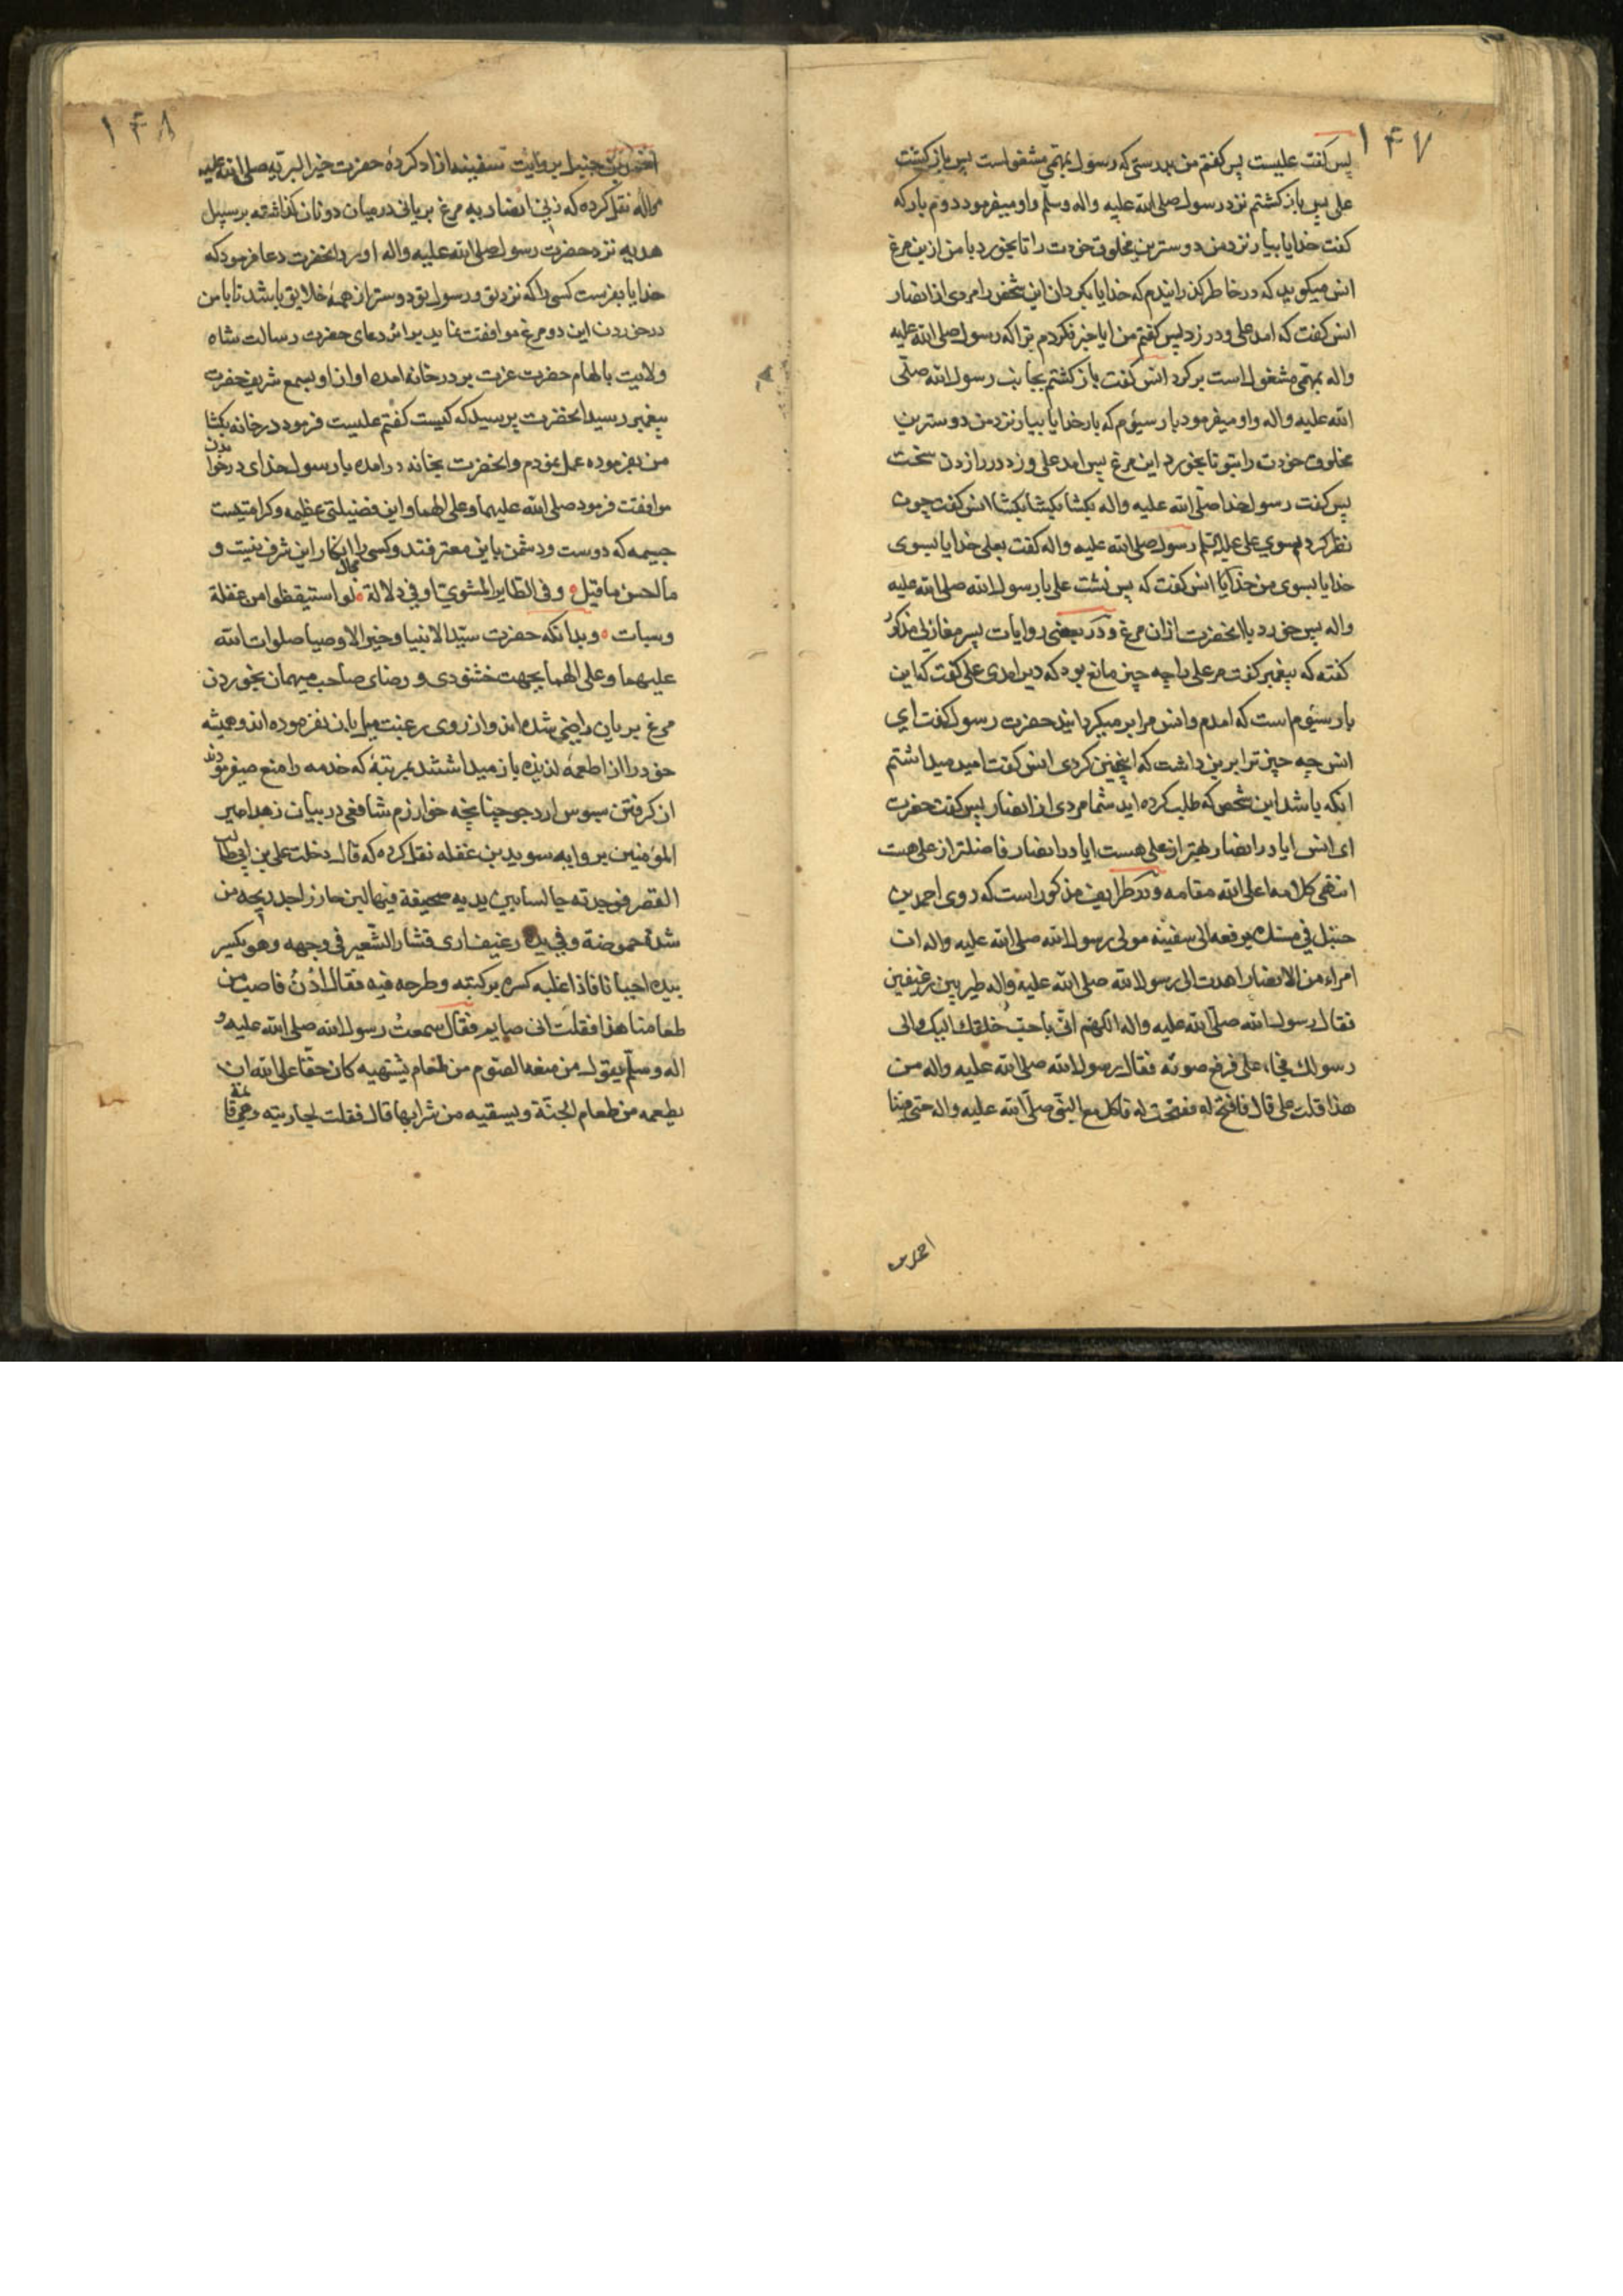 ۱۴۷
پس گفت علیست پس گفتم من بدرستی که رسول بمهمی مشغولست پس باز گشت
علی پس باز گشتم نزد رسول صلی الله علیه واله وسلّم واو میفرمود دوم بار که
گفت خدایا بیار نزد من دوسترین مخلوق خودت را تا بخورد با من ازین مرغ
انس میگوید که در خاطر گذرانیدم که خدایا بگردان این شخص را مردی از انصار
انس گفت که امد علی و در زد پس گفتم من ایا خبر نکردم ترا که رسول صلی الله علیه
واله بمهمی مشغول است برگرد انس گفت باز گشتم بجانب رسول الله صلّی
الله علیه واله واو میفرمود بار سیّوم که بار خدایا بیار نزد من دوسترین
مخلوق خودت را بتو تا بخورد این مرغ پس امد علی و زد در را زدن سخت
پس گفت رسول خدا صلّی الله علیه واله بگشا بگشا بگشا انس گفت چون
نظر کرد بسوی علی رسول صلی الله علیه واله گفت بعلی خدایا بسوی
خدایا بسوی من خدایا انس گفت که پس نشت علی با رسول الله صلی الله علیه
واله پس خورد با انحضرت ازان مرغ و در بعضی روایات پسر مغازلی مذکور
گفته که پیغمبر گفت مر علی را چه چیز مانع بود که دیر امدی علی گفت که این
بار سیّوم است که امدم وانس مرا بر میگردانید حضرت رسول گفت ای
انس چه چیز ترا برین داشت که اینچنین کردی انس گفت امید میداشتم
انکه باشد این شخص که طلب کرده اید شما مردی از انصار پس گفت حضرت
ای انس ایا در انصار بهتر از علی هست ایا در انصار فاضلتر از علی هست
انتهی کلامه اعلی الله مقامه و در طرایف مذکور است که روی احمد بن
حنبل فی مسنده یرفعه الی سفینه مولی رسول الله صلی الله علیه واله ان
امراءة من الانصار اهدت الی رسول الله صلی الله علیه واله طیر بین رغیفین
فقال رسول الله صلّی الله علیه واله اللهم ائتنی باحب خلقک الیک والی
رسولک فجاء علی فرفع صوته فقال رسول الله صلی الله علیه واله من
هذا قلت علی قال فافتح له ففتحت له فاکل مع النبی صلّی الله علیه واله حتی فنیا
احمد بن
۱۴۸
احمد بن حنبل بروایت سفینه ازاد کردهٔ حضرت خیر البریّه صلی الله علیه
واله نقل کرده که زنی انصاریه مرغ بریانی در میان دو نان گذاشته بر سبیل
هدیه نزد حضرت رسول صلی الله علیه واله اورد انحضرت دعا فرمود که
خدایا بفرست کسی را که نزد تو و رسول تو دوستر از همهٔ خلایق باشد تا با من
در خوردن این دو مرغ موافقت نماید بر اثر دعای حضرت رسالت شاه
ولایت بالهام حضرت عزت بر در خانه امده اواز او بسمع شریف حضرت
پیغمبر رسید انحضرت پرسید که کیست گفتم علیست فرمود در خانه بگشا
من بفرموده عمل نمودم وانحضرت بخانه در امده با رسول خدای در خوردن
موافقت فرمود صلی الله علیهما وعلی الهما واین فضیلتی عظیمه و کرامتیست
جسیمه که دوست و دشمن باین معترفند و کسی را مجال انکار این شرف نیست و
ما احسن ما قیل و فی الطایر المشوی اوفی دلالة لو استیقظوا من غفلة
وسبات و بدانکه حضرت سیّد الانبیا وخیر الاوصیا صلوات الله
علیهما وعلی الهما بجهت خشنودی و رضای صاحب میهمان بخوردن
مرغ بریان راضی شده اند واز روی رغبت میل بان نفرموده اند وهمیشه
خود را از اطعمهٔ لذیذه باز میداشتند بمرتبهٔ که خدمه را منع میفرمودند
از گرفتن سبوس ارد جو چنانچه خوارزم شافعی در بیان زهد امیر
المؤمنین بروایه سوید بن غفله نقل کرده که قال دخلت علی بن ابی طالب
القصر فوجدته جالسا بین یدیه صحیفة فیها لبن حازر اجد ریحه من
شدة حموضة و فی یده رغیف اری قشار الشّعیر فی وجهه وهو یکسر
بیده احیانا فاذا غلبه کسره برکبته وطرحه فیه فقال ادن فاصب من
طعامنا هذا فقلت انی صایم فقال سمعت رسول الله صلی الله علیه و
اله وسلّم یقول من منعه الصّوم من طعام یشتهیه کان حقا علی الله ان
یطعمه من طعام الجنّة ویسقیه من شرابها قال فقلت لجاریته وهی قائمة